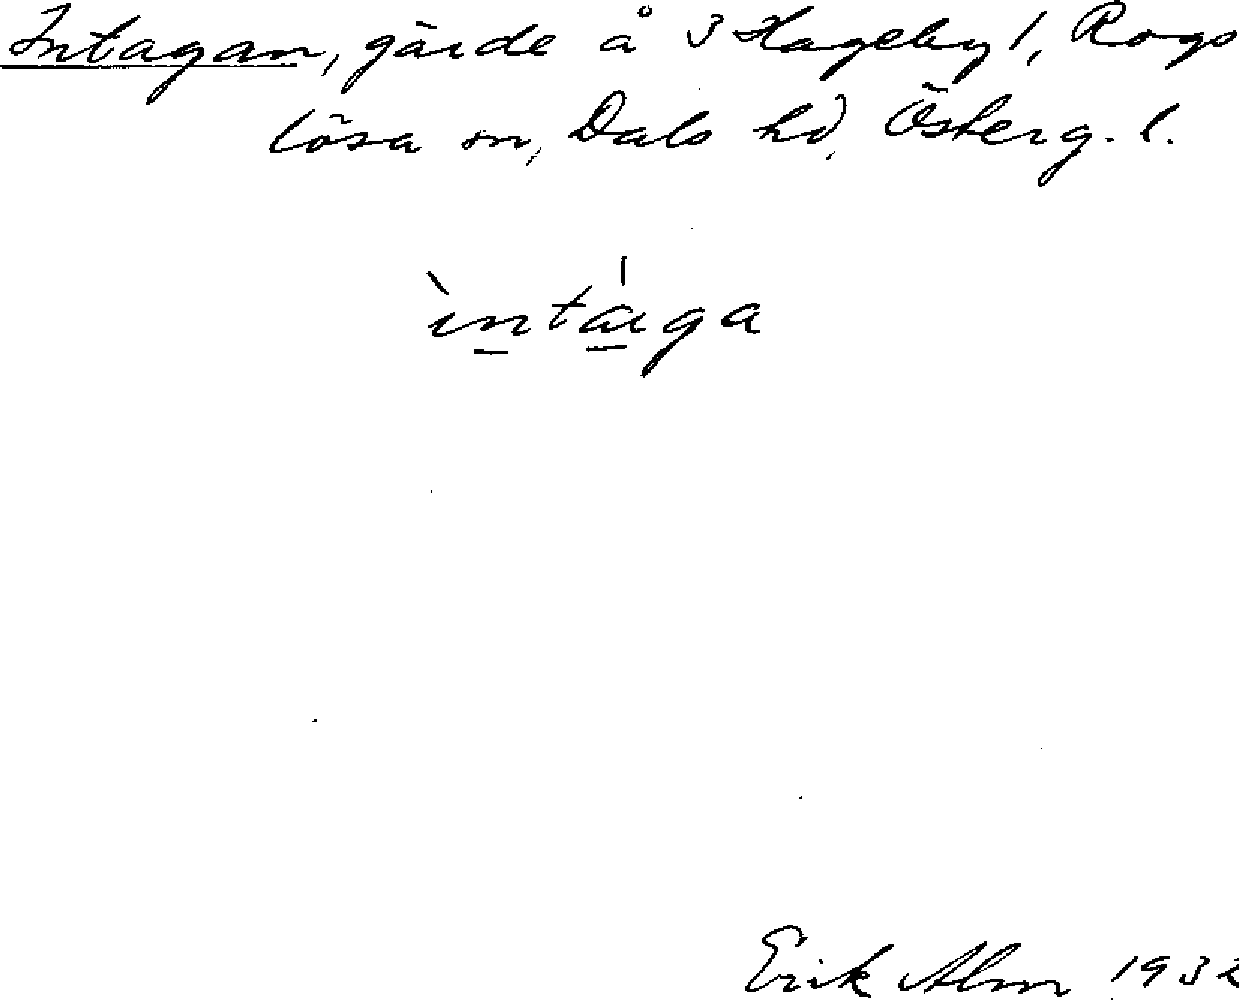 Intagan, gärde å 3 Hageby 1, Rogs
lösa sn, Dals hd, Österg. l.
ìntága
Erik Alm 1932